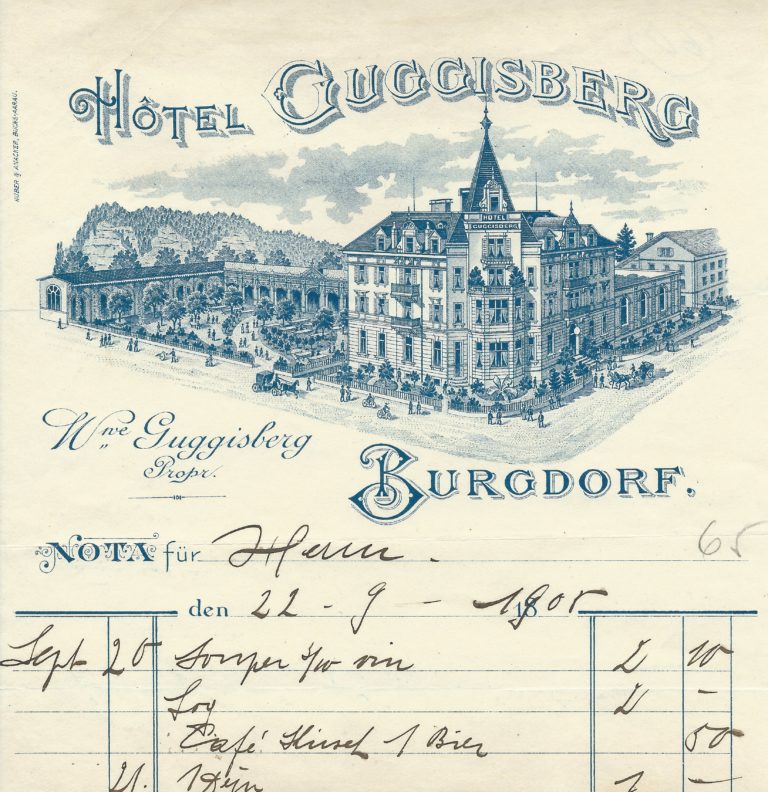 HÔTEL GUGGISBERG
HUBER & ANACKER, BUCHS-AARAU.
HOTEL
GUGGISBERG
Wwe Guggisberg
Propr.
BURGDORF.
65
NOTA für Herrn.
den 22 - 9 - 1905
Sept 20 Souper s/w vin 2 10
Log 2 -
Café Kirsch 1 Bier 50
21. 1 Déjn 1 -